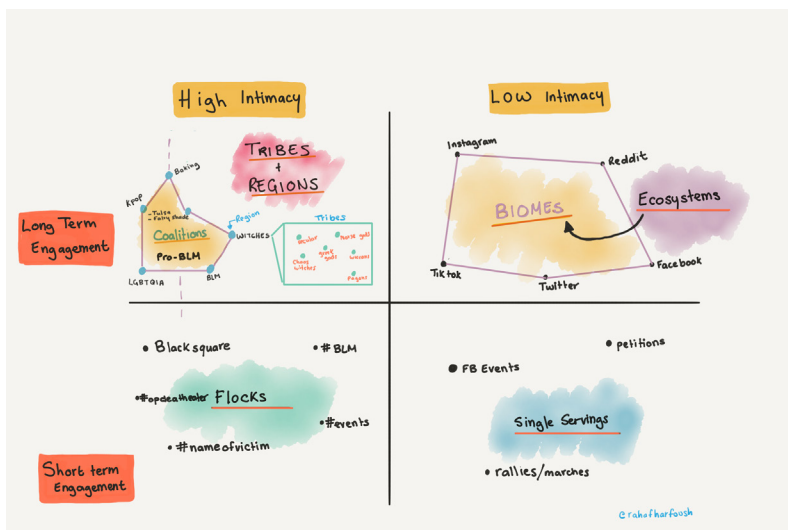 High Intimacy
Low Intimacy
Long Term
Engagement
TRIBES
+
REGIONS
Baking
Kpop
- Tulsa
Coalitions
Pro-BLM
LGBTQIA
BLM
Region
WITCHES
Tribes
secular
Norse gods
Chaos
witches
greek
gods
wiccans
Pagans
Instagram
Reddit
BIOMES
Ecosystems
Tik tok
Twitter
Facebook
Blacksquare
#BLM
#opdeatheater
FLOCKS
#events
#nameofvictim
Short term
Engagement
petitions
FB Events
Single Servings
rallies/marches
@rahafharfoush